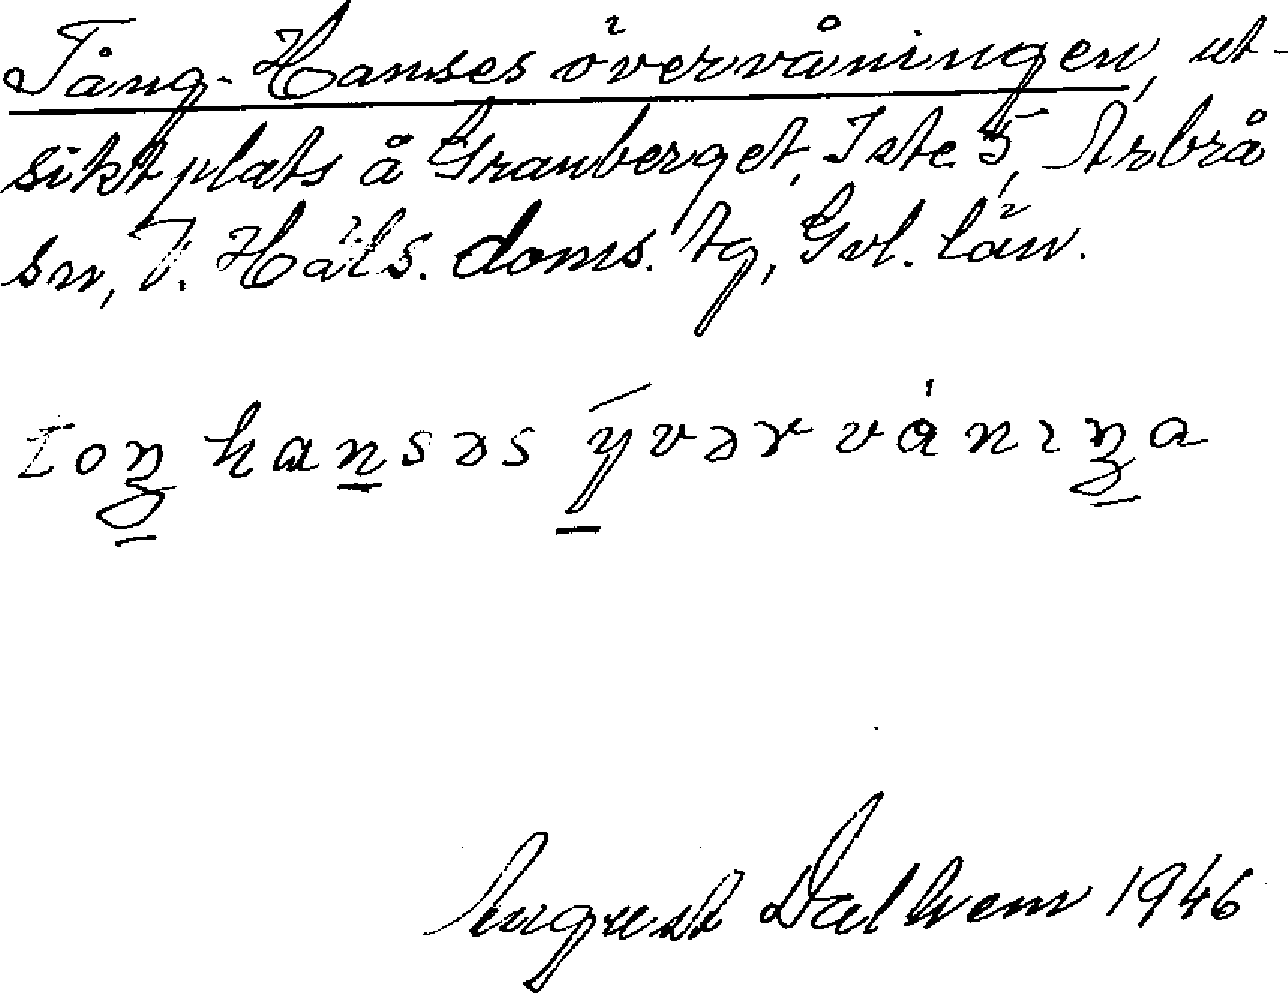 Tång-Hanses övervåningen, ut-
siktplats å Granberget, Iste 5, Arbrå
sn, V. Häls. doms. tg, Gvl. län.
toŋ hansəs ývər vánɪŋa
August Dalhem 1946